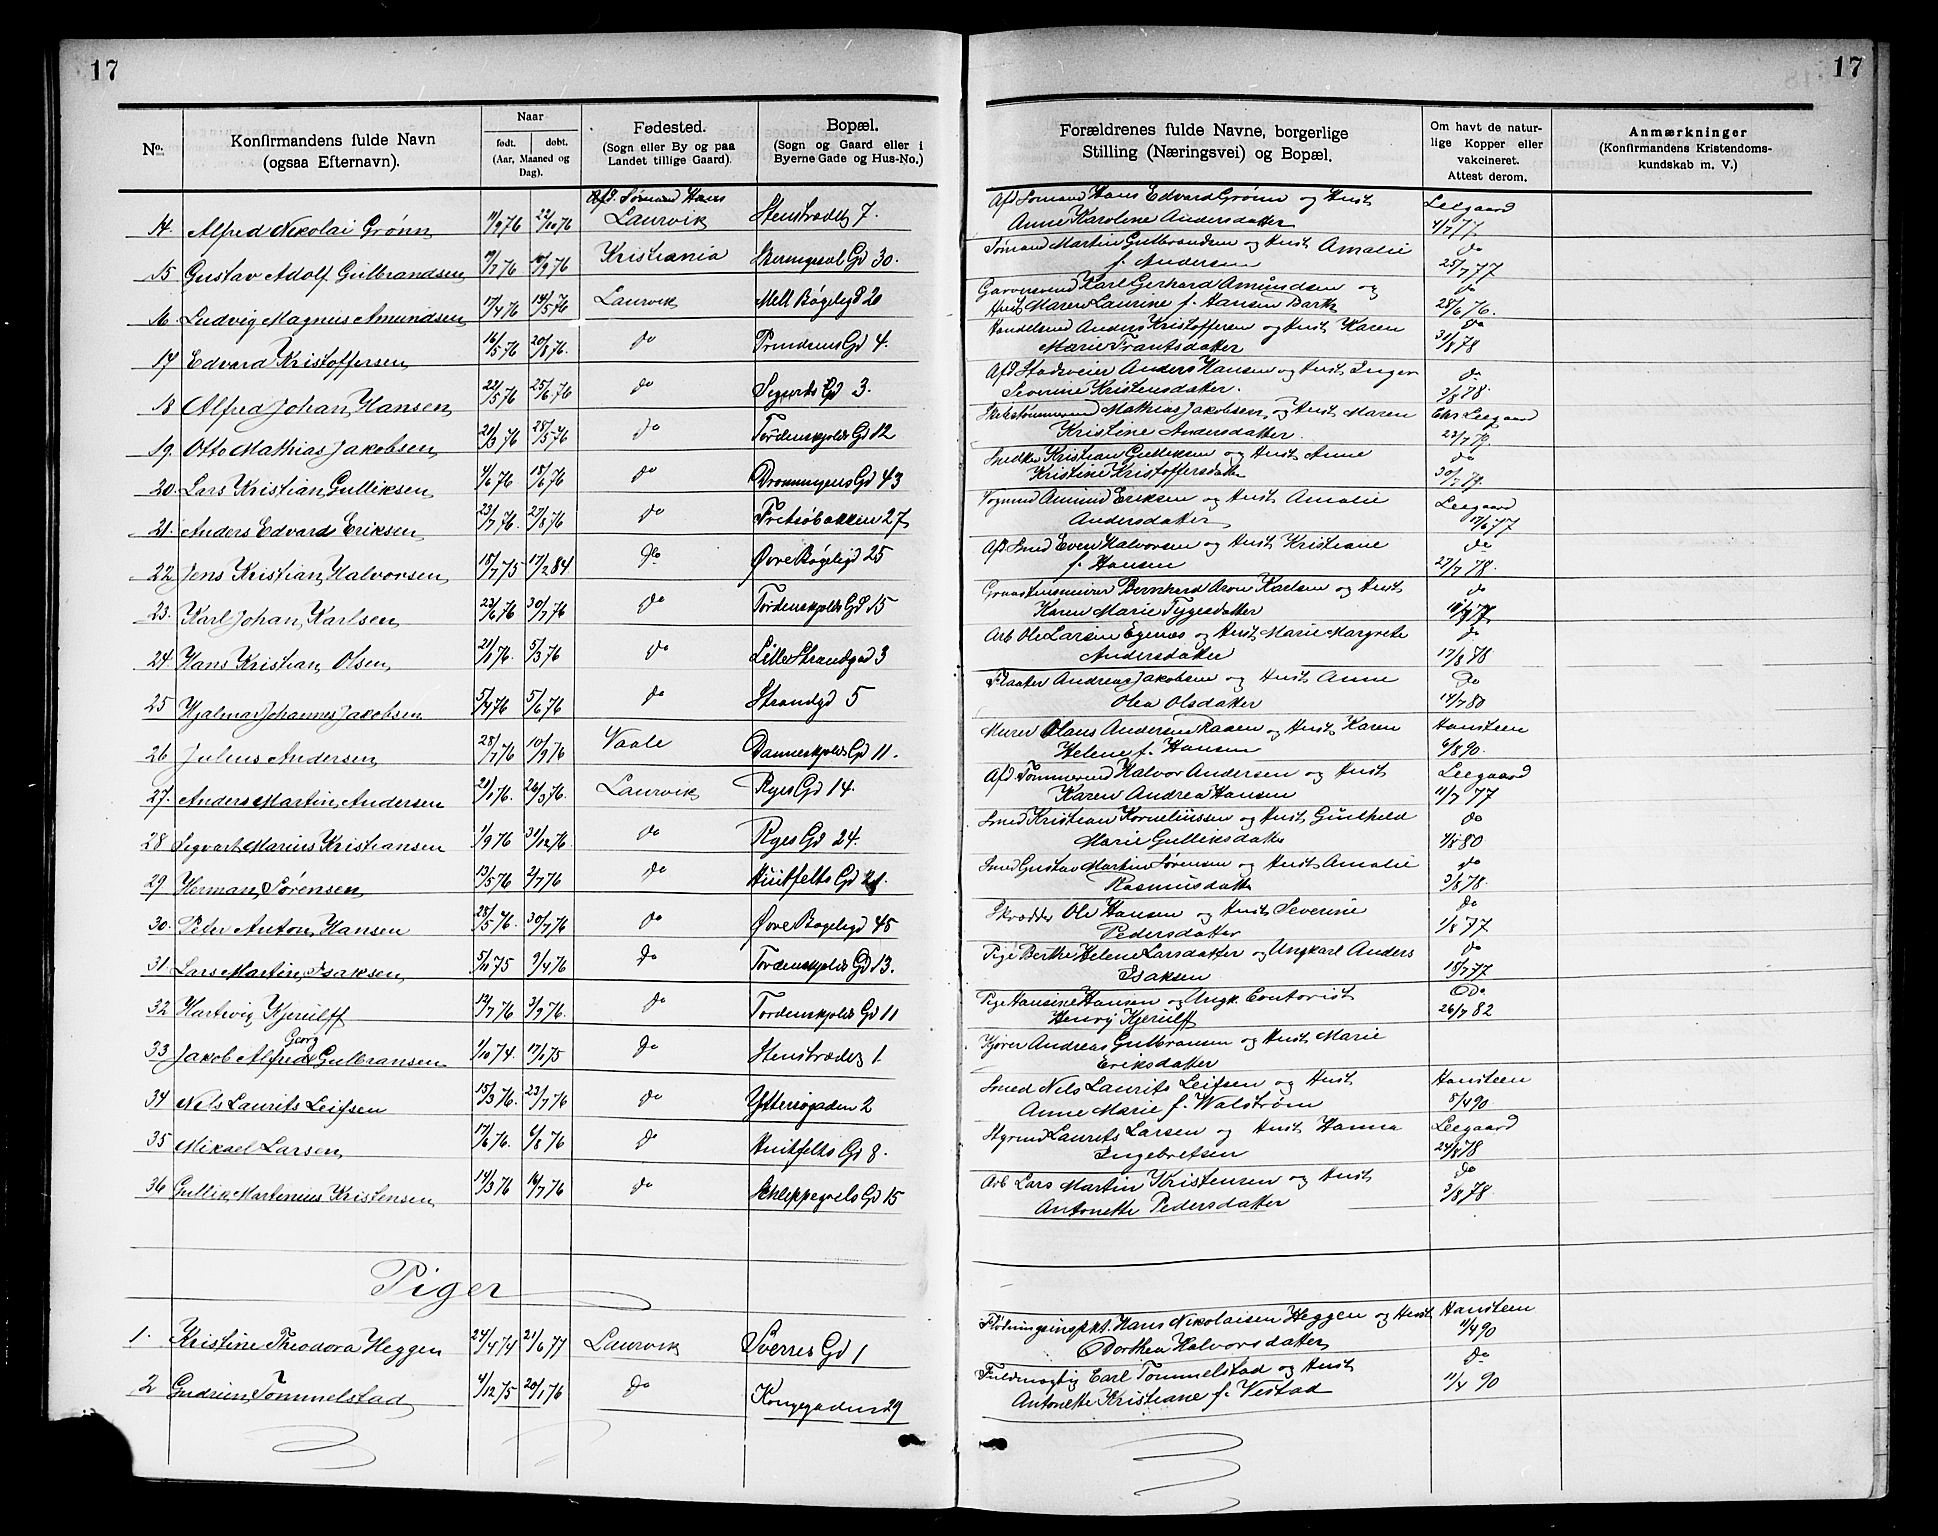 17
17
No. Konfirmandens fulde Navn (ogsaa Efternavn). Naar født. døbt. (Aar, Maaned og Dag). Fødested. (Sogn eller By og paa Landet tillige Gaard). Bopæl. (Sogn og Gaard eller i Byerne Gade og Hus-No.) Forældrenes fulde Navne, borgerlige Stilling (Næringsvei) og Bopæl. Om havt de naturlige Kopper eller vakcineret. Attest derom. Anmærkninger (Konfirmandens Kristendomskundskab m. V.)
Afd. Sømand Hans
14. Alfred Nikolai Grønn 11/9 76 22/10 76 Laurvik Stenstrædet 7. Afd Sømand Hans Edvard Grønn og Hust Leegaard
Anne Karoline Andersdatter 4/7 77
15 Gustav Adolf Gulbrandsen 19/7 76 10/9 76 Kristiania Skeringsal Gd 30. Sømand Martin Gulbrandsen og Hust Amalie do
f. Andersen 25/7 77
16 Ludvig Magnus Amundsen 17/4 76 14/5 76 Laurvik Mell Bøgeligd 26 Garversvend Karl Gerhard Amundsen og do
Hust Maren Laurine f. Hansen Barth 28/6 76.
17 Edvard Kristoffersen 16/5 76 20/8 76. do Prindsens Gd 4. Handelsmd Anders Kristoffersen og Hust Karen do
Marie Frantsdatter 31/8 78
18 Alfred Johan Hansen 22/5 76 25/6 76 do Sigurds Gd 3. Afd Stadsveier Anders Hansen og Hust Inger do
Severine Kristensdatter. 2/8 78.
19. Otto Mathias Jakobsen 21/3 76 28/5 76 do Tordenskjolds Gd 12 Skibstømmermd Mathias Jakobsen og Hust Maren Chr Leegaard
Kristine Andersdatter. 23/7 79.
20. Lars Kristian Gulliksen 4/6 76 18/6 76 do Dronningens Gd 43 Snedker Kristian Gulliksen og Hust Anne do
Kristine Kristoffersdatter 30/7 77.
21. Anders Edvard Eriksen 23/7 76. 27/8 76 do Fretsøbakken 27 Vognmd Amund Eriksen og Hust Amalie Leegaard
Andersdatter 12/6 77
22 Jens Kristian Halvorsen 18/7 75 17/2 84 do Øvre Bøgeligd 25 Afd. Smed Even Halvorsen og Hust Kristiane do
f. Hansen 27/7 78.
23. Karl Johan Karlsen 23/6 76 30/7 76 do Tordenskjolds Gd 15 Graastensmurer Bernhard Aron Karlsen og Hust do
Karen Marie Tygesdatter
24. Hans Kristian Olsen 21/1 76. 5/3 76 do Lille Strandgad 3 Arb Ole Larsen Egenæs og Hust Marie Margrete do
Andersdatter 17/8 78
25 Hjalmar Johannes Jakobsen 5/4 76 5/6 76 do Strandgd 5 Flaater Andreas Jakobsen og Hust Anne Do
Olea Olsdatter 14/7 80
26 Julius Andersen 28/7 76 10/9 76 Vaale Danneskjolds Gd 11. Murer Olaus Andersen Raaen og Hust Karen Hansteen
Helene f. Hansen 6/8 90.
27. Anders Martin Andersen 21/1 76. 26/3 76. Laurvik Ryes Gd 14. Afd. Tømmermd Halvor Andersen og Hust Leegaard
Karen Andrea Hansen 11/7 77
28 Sigvart Marius Kristiansen 1/9 76 31/12 76 do Ryes Gd 24. Smed Kristian Korneliussen og Hust Gunhild do
Marie Gulliksdatter 4/8 80
29 Herman Sørensen 13/5 76 2/7 76 do Huitfelts Gd 21. Smed Gustav Martin Sørensen og Hust Amalie do
Rasmusdatter 3/8 78.
30. Peter Anton Hansen 28/5 76. 30/7 76 do Øvre Bøgeligd 45 Skrædder Ole Hansen og Hust Severine do
Pedersdatter 1/8 77
31 Lars Martin Isaksen 5/11 75 9/4 76 Do Tordenskjolds Gd 13. Pige Berthe Helene Larsdatter og Ungkarl Anders do
Isaksen 18/7 77
32 Hartvig Kjerulff 12/7 76 3/9 76. do Tordenskjolds Gd 11 Pige Hansine Hansen og Ungk. Contorist Do
Henry Kjerulff 26/7 82
Georg
33 Jakob Alfred Gulbransen 1/10 74. 17/1 75 Do Stenstrædet 1 Kjører Andreas Gulbransen og Hust Marie
Eriksdatter
34 Nels Laurits Leifsen 15/3 76. 23/7 76 do Yttersøgaden 2 Smed Nels Laurits Leifsen og Hust Hansteen
Anne Marie f. Walstrøm 8/4 90
35 Mikael Larsen 17/6 76. 6/8 76 do Huitfelts Gd 8. Styrmd Laurits Larsen og Hust Hanna Leegaard
Ingebretsen 24/8 78
36 Gullik Martinius Kristensen 14/3 76 16/7 76 do Schleppegrels Gd 15 Arb Lars Martin Kristensen og Hust do
Antonette Pedersdatter 3/8 78.
Piger
1. Kristine Theodora Heggen 24/4 74 21/6 77 Laurvik Sverres Gd 1 Flødningsinspkt. Hans Nikolaisen Heggen og Hust Hansteen
Dorthea Halvorsdatter 11/4 90
2 Gudrun Tommelstad 4/12 75 20/1 76 Do Kongegaden 29 Fuldmægtig Carl Tommelstad og Hust Do
Antonette Kristiane f. Vestad 11/4 90